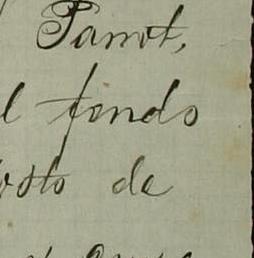 Parrot,
l fondo
osto de